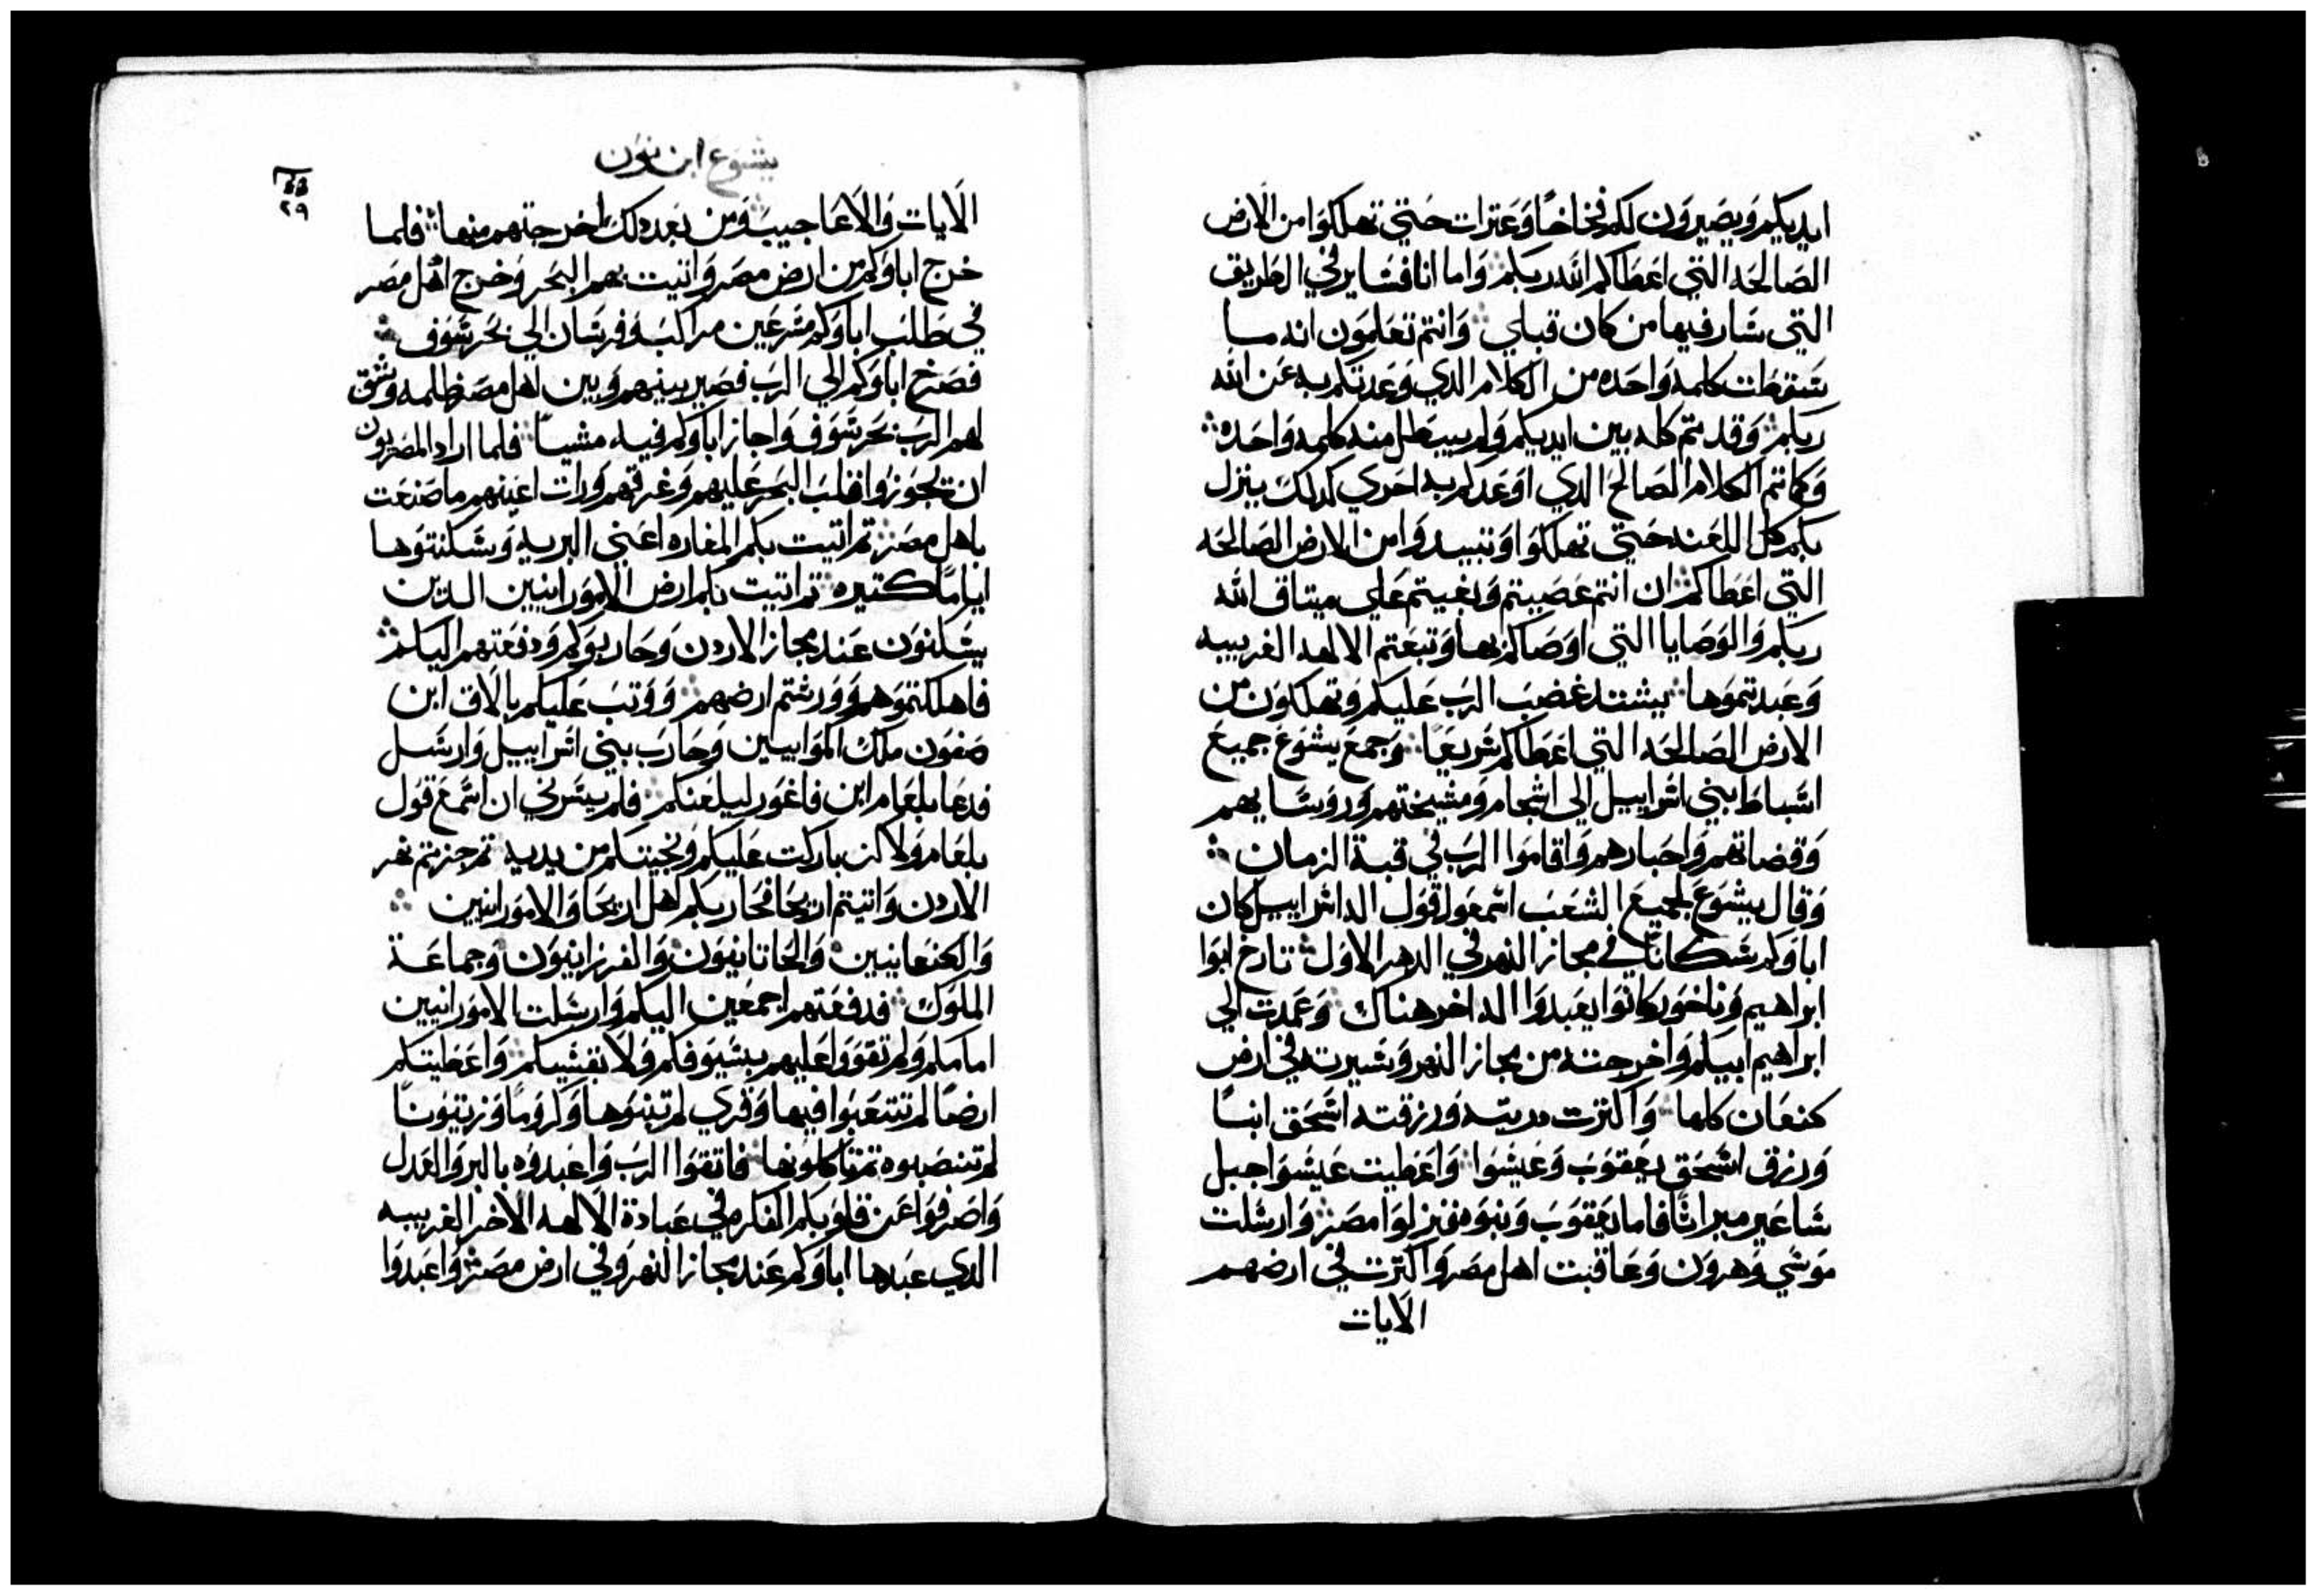 ايديكم ويصيرون لكم فخاخًا وعترات حتي تهلكوا من الارض
الصالحه التي اعطاكم الله ربكم وَاما انا فساير في الطريق
التي سَار فيها من كان قبلي وَانتم تعلمون انه ما
سَقطت كلمه وَاحده من الكلام الدي وَعدتكم به عَن الله
ربكم وَقد تم كله بين ايديكم وَلم يبطل منه كلمه وَاحده
وَكما تم الكلام الصَالح الدي اوَعَدكم به احري كدلك ينزل
بكم كل اللعنه حَتي تهلكوا وَتبيدوَا من الارض الصَالحَه
التي اعَطاكم ان انتم عَصَيتم وَبغيتم عَلي ميتاق الله
ربكم وَالوَصَايا التي اوَصَاكم بها وَتبعَتم الالهه الغريبه
وَعَبدتموَها يشتد غضبَ الربَ عَليكم وَتهلكوَن من
الارض الصَالحَه التي اعَطاكم سَريعَا وَجمعَ يشوَع جميعَ
اسَباطَ بني اسَراييل الي اشحام وَمشيختهم وَروَسَايهم
وَقضاتهم وَاحَبارهم وَاقاموَا الربَ في قبة الزمان
وَقال يشوَع لجميعَ الشعَبَ اسَمعَوا قوَل اله اسَراييل كان
اباوَكم سَكانًا في مجاز النهر في الدهر الاوَل تارخ ابوَا
ابراهيم وَناخوَر كانوَا يعَبدوَا اله اخر هناك وَعَمدت الي
ابراهيم ابيكم وَاخرجته من مجاز النهر وَسَيرته في ارض
كنعَان كلها وَاكترت دريته وَرزقته اسَحَق ابنًا
وَرزق اسَحَق يعَقوَبَ وَعَيسَوا وَاعَطيت عَيسَوا جبل
سَاعَير ميراثًا فاما يعَقوَبَ وَبنوَه فنزلوَا مصَر وَارسَلت
موَسَي وَهروَن وَعَاقبت اهل مصَر وَاكترت في ارضهم
الآيات
يشوع ابن نون
٢٩
الآيات وَالآعَاجيبَ وَمن بَعد دلك اخرجتهم منها فلما
خرج اباوَكم من ارض مصَر وَاتيت بهم البحَر وَخرج اهل مصَر
في طلبَ اباوَكم مسَرعَين مراكبَ وَفرسَان الي بحَر سَوَف
فصَرخ اباوَكم الي الربَ فصَير بينهم وَبين اهل مصَر ظلمه وَشق
لهم الربَ بحَر سَوَف وَاجاز اباوَكم فيه مشيًا فلما اراد المصَريوَن
ان يجوَزوَا قلبَ البحَر عَليهم وَغرقهم وَرات اعَينهم ما صَنعَت
باهل مصَر تم اتيت بكم المغاره اعَني البريه وَسَكنتوَها
ايامًا كتيره تم اتيت بكم ارض الاموَرانيين الدين
يسَكنوَن عَند مجاز الاردن وَحَاربوَكم وَدفعَتهم اليكم
فاهلكتموَهم وَوَرثتم ارضهم وَوَتبَ عَليكم بالاق ابن
صَفوَن ملك الموَابيين وَحَاربَ بني اسَراييل وَارسَل
فدعَا بلعَام ابن فاغوَر ليلعَنكم فلم يسَرني ان اسَمعَ قوَل
بلعَام وَلاكن باركت عَليكم وَنجيتكم من يديه تم جزتم نهر
الاردن وَاتيتم اريحَا فحَاربكم اهل اريحَا وَالاموَرانيين
وَالكنعَانيين وَالحَاتانيوَن وَالفرزانيوَن وَجماعَة
الملوَك فدفعَتهم اجمعَين اليكم وَارسَلت الاموَرانيين
امامكم وَلم تقوَوا عَليهم بسَيوَفكم وَلا بقسَيكم وَاعَطيتكم
ارضًا لم تتعَبوَا فيها وَقري لم تبنوَها وَكروَمًا وَزيتوَنًا
لم تنصَبوه تم تاكلوَنها فاتقوَا الربَ وَاعَبدوَه بالبر وَالعَدل
وَاصَرفوَا عَن قلوَبكم الفكر في عَبادة الآلهه الآخر الغريبه
الدي عَبدها اباوَكم عَند مجاز النهر وَفي ارض مصَر وَاعَبدوَا